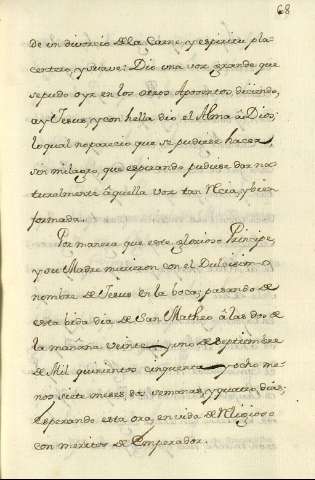 68
de un divorcio de la Carne, y espiritu pla-
centero, y suave: Dio una voz grande que
se pudo oyr en los otros Aposentos, diciendo,
ay Jesus, y con hella dio el Alma â Dios;
lo qual no pareció que se pudiese hacer,
sin milagro, que espirando pudiese dar na-
turalmente âquella voz tan Recia, y bien
formada.
Por manera que este glorioso Principe,
y su Madre murieron con el Dulcisimo
nombre de Jesus en la boca; pasando de
esta bida dia de San Matheo â las dos de
la mañana veinte y uno de septiembre
de Mil quinientos cinquenta y ocho me-
nos siete meses, dos semanas, y quatro dias,
esperando esta ora en vida de Religioso
con meritos de Emperador.